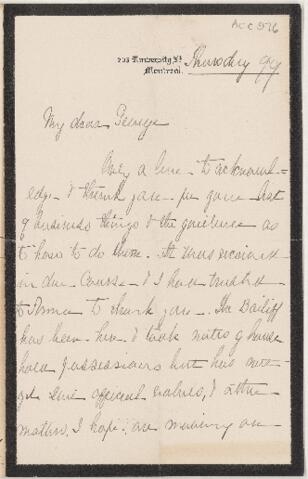 Acc 576
Thursday 9th
University St
Montreal.
My dear George
Only a line to acknowl-
edge & thank you for your list
of business things & the guidance as
to how to do them. It was received
in due course & I had trusted
to thank you. The Bailiff
has been here & took notes of house
hold possessions but has not
yet sent official values, & other
matters, I hope, are moving on